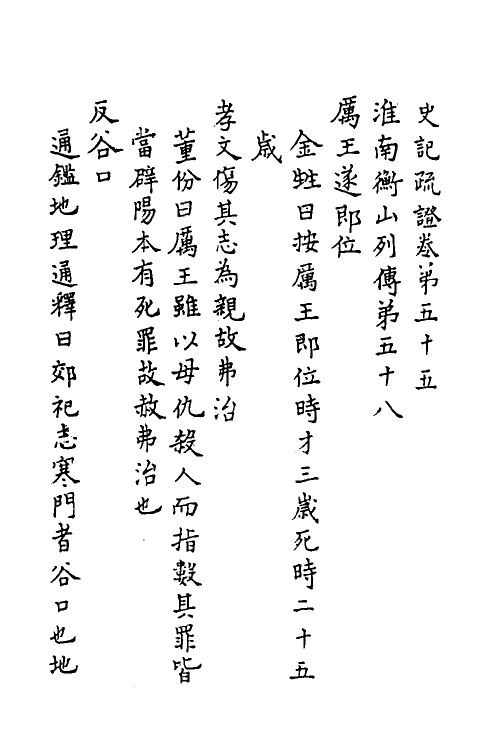 史記疏證卷第五十五
淮南衡山列傳第五十八
厲王遂即位
金甡曰按厲王即位時才三歲死時二十五
歲
孝文傷其志為親故弗治
董份曰厲王雖以母仇殺人而指數其罪皆
當辟陽本有死罪故赦弗治也
反谷口
通鑑地理通釋曰郊祀志寒門者谷口也地